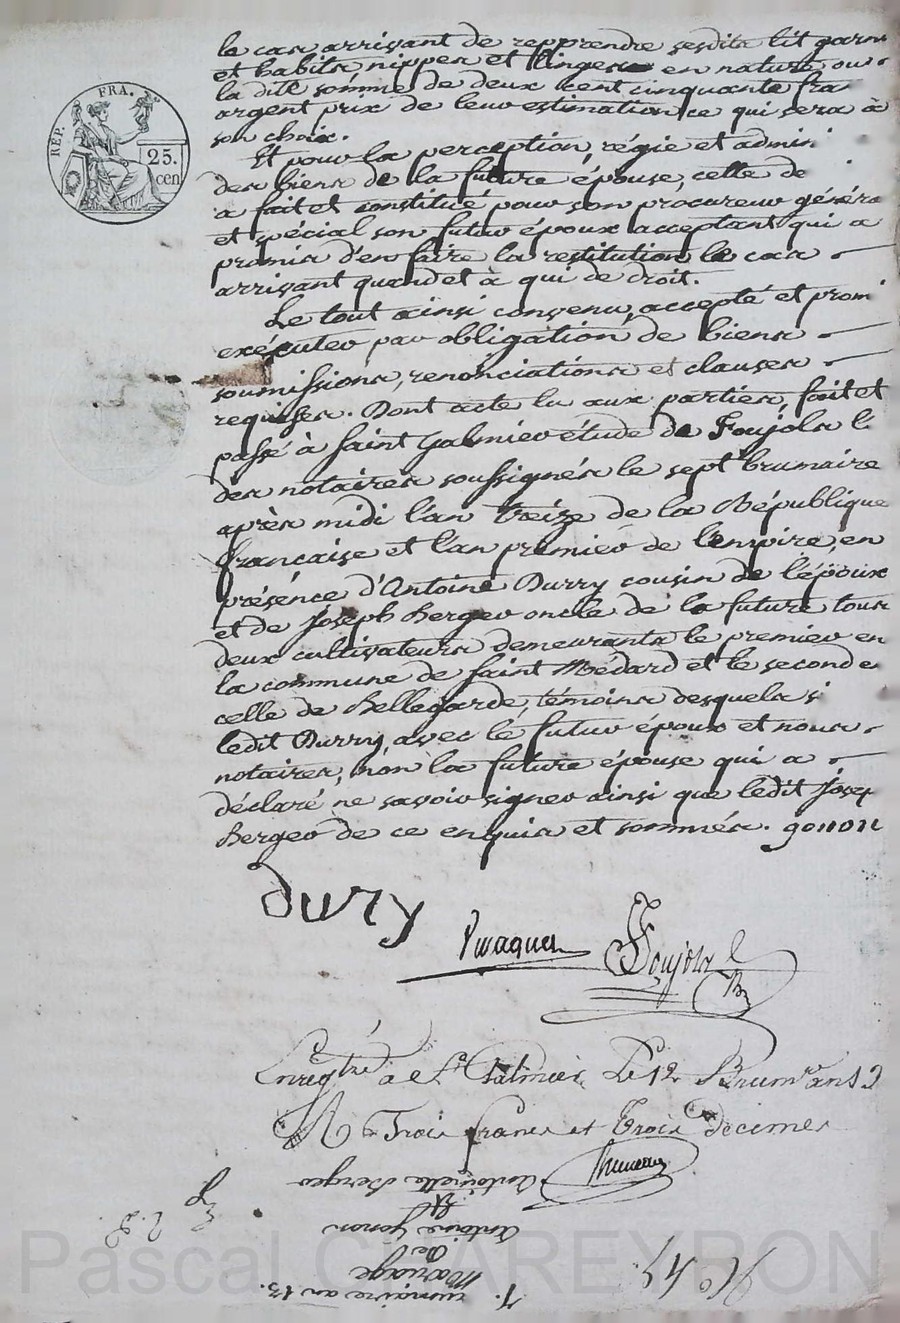 RÉP. FRA.
25.
cen
le cas arrivant de repprendre sesdits lit garni
et habits nippes et linges en nature ou
la dite somme de deux cent cinquante fra
argent prix de leur estimation ce qui sera à
son choix.
Et pour la perception, régie et admini
des biens de la future épouse, celle de
a fait et constitué pour son procureur généra
et spécial son futur époux acceptant qui a
promis d'en faire la restitution le cas
arrivant quand et à qui de droit.
Le tout ainsi convenu, accepté et promi
exécuter par obligation de biens
soumissions, renonciations et clauses
requises. Dont acte lu aux parties, fait et
passé à Saint Galmier étude de Foujols l'
des notaires soussignés le sept brumaire
après midi l'an treize de la République
française et l'an premier de l'empire, en
présence d'Antoine Durry cousin de l'époux
et de Joseph Berger oncle de la future tous
deux cultivateurs demeurants le premier en
la commune de Saint Médard et le second e
celle de Bellegarde, témoins desquels
ledit Durry, avec le futur époux et nous
notaires, non la future épouse qui a
déclaré ne savoir signer ainsi que ledit Josep
Berger de ce enquis et sommés. gonon
durry
Foujols
Enregtré a St Galmier Le 12 Brumre an 13
R Trois francs et Trois décimes
Antoinette Berger
Et
Antoine Gonon
De
Mariage
7. rumaire an 13.
Pascal CHAREYRON